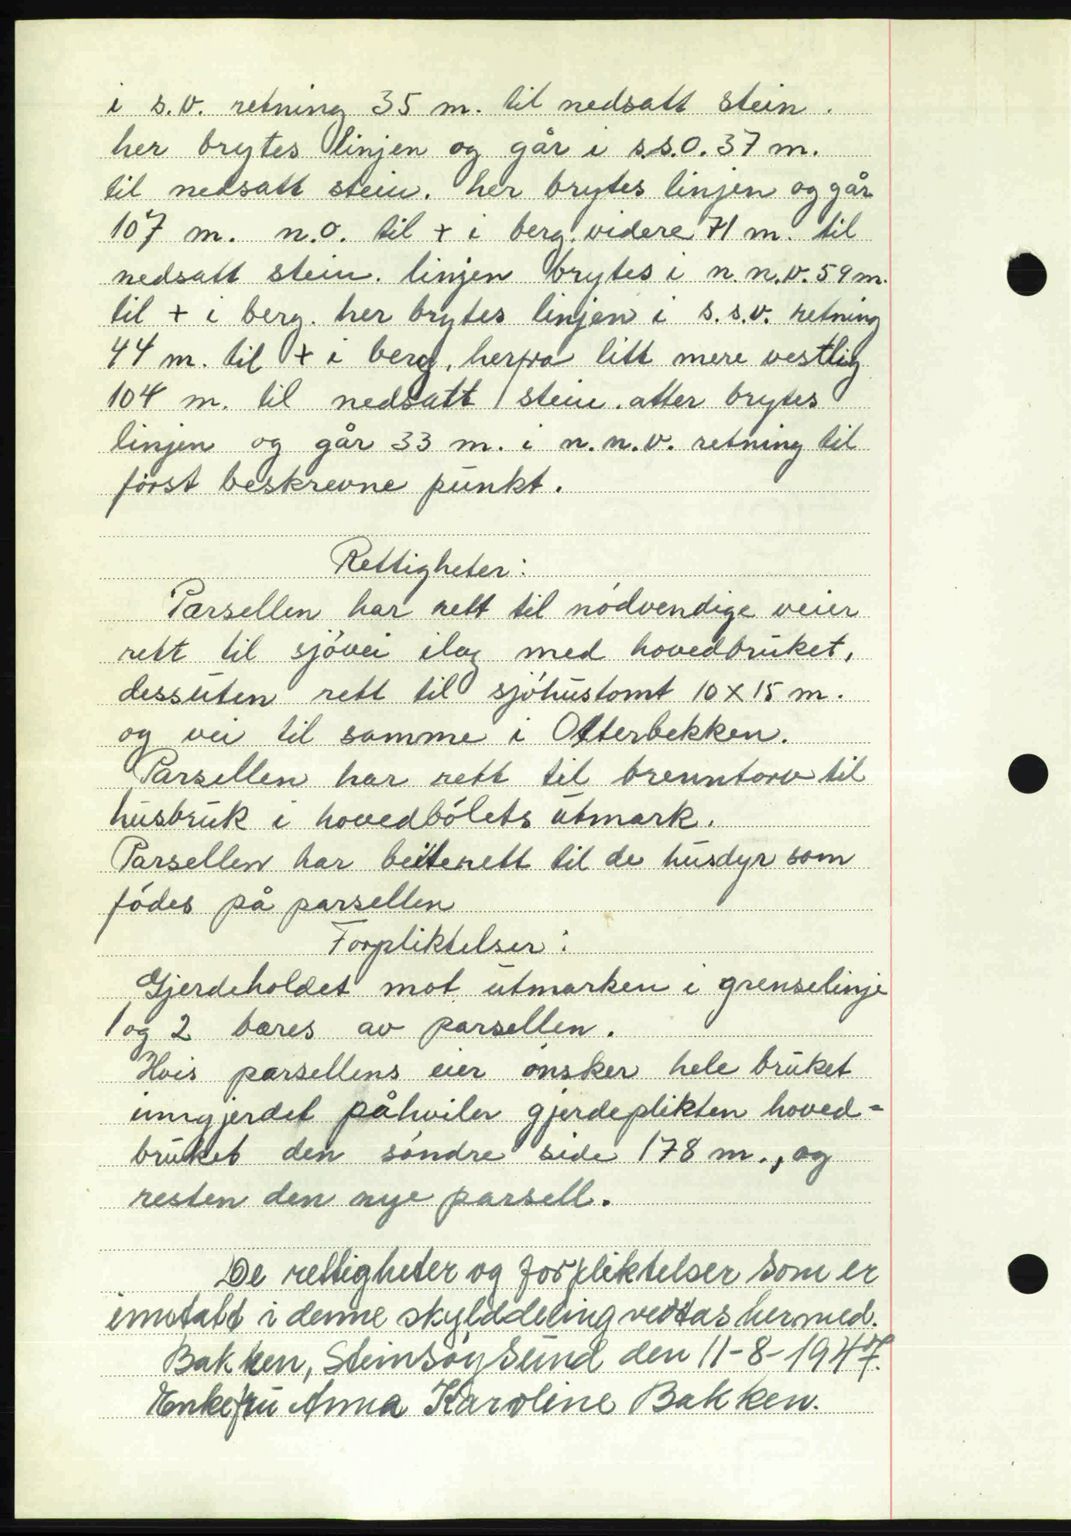 i s.v. retning 35 m. til nedsatt stein.
her brytes linjen og går i s.s.o. 37 m.
til nedsatt stein. her brytes linjen og går
107 m. n.o. til + i berg. videre 71 m. til
nedsatt stein. linjen brytes i n.n.v. 59 m.
til + i berg. her brytes linjen i s.s.v. retning
44 m. til + i berg, herfra litt mere vestlig
104 m. til nedsatt stein. atter brytes
linjen og går 33 m. i n.n.v. retning til
først beskrevne punkt.
Rettigheter:
Parsellen har rett til nødvendige veier
rett til sjøvei ilag med hovedbruket,
dessuten rett til sjøhustomt 10 x 15 m.
og vei til samme i Otterbekken.
Parsellen har rett til brenntorv til
husbruk i hovedbølets utmark.
Parsellen har beiterett til de husdyr som
fødes på parsellen
Forpliktelser:
Gjerdeholdet mot utmarken i grenselinje
1 og 2 bæres av parsellen.
Hvis parsellens eier ønsker hele bruket
inngjerdet påhviler gjerdeplikten hoved=
bruket den søndre side 178 m., og
resten den nye parsell.
De rettigheter og forpliktelser som er
inntatt i denne skylddeling vedtas hermed.
Bakken, Steinsøysund den 11-8-1947.
Enkefru Anna Karoline Bakken.